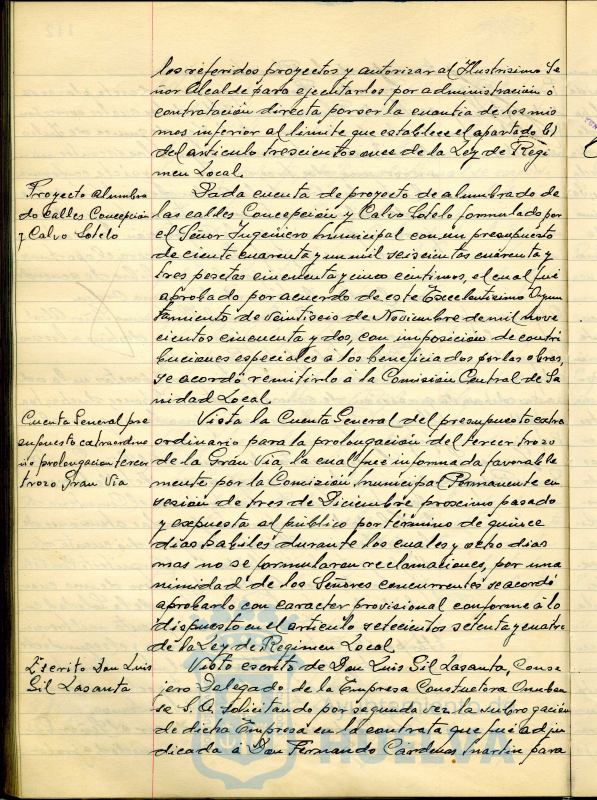 los referidos proyectos y autorizar al Ilustrisimo Se
ñor Alcalde para ejecutarlos por administración ó
contratación directa por ser la cuantia de los mis
mos inferior al limite que establece el apartado b)
del articulo trescientos once de la Ley de Régi
men Local.
Proyecto alumbra
do calles Concepción
y Calvo Sotelo
Dada cuenta de proyecto de alumbrado de
las calles Concepción y Calvo Sotelo formulado por
el Señor Ingeniero municipal con un presupuesto
de ciento cuarenta y un mil seiscientas cuarenta y
tres pesetas cincuenta y cinco centimos, el cual fué
aprobado por acuerdo de este Excelentisimo Ayun
tamiento de veintiseis de Noviembre de mil nove
cientos cincuenta y dos, con imposición de contri
buciones especiales á los beneficiados por las obras,
se acordó remitirlo á la Comisión Central de Sa
nidad Local.
Cuenta General pre
supuesto extraordina
rio prolongacion tercer
trozo Gran Via
Vista la Cuenta General del presupuesto extra
ordinario para la prolongación del tercer trozo
de la Gran Via, la cual fué informada favorable
mente por la Comisión municipal Permanente en
sesión de tres de Diciembre proximo pasado
y expuesta al público por término de quince
dias habiles durante los cuales y ocho dias
mas no se formularon reclamaciones, por una
nimidad de los Señores concurrentes se acordó
aprobarlo con caracter provisional conforme á lo
dispuesto en el articulo setecientos setenta y cuatro
de la Ley de Regimen Local.
Escrito Don Luis
Gil Lasanta
Visto escrito de Don Luis Gil Lasanta, Conse
jero Delegado de la Empresa Constructora Onuben
se S.A. solicitando por segunda vez la subrogación
de dicha Empresa en la contrata que fué adju
dicada á Don Fernando Cardenas Martin para
HUELVA